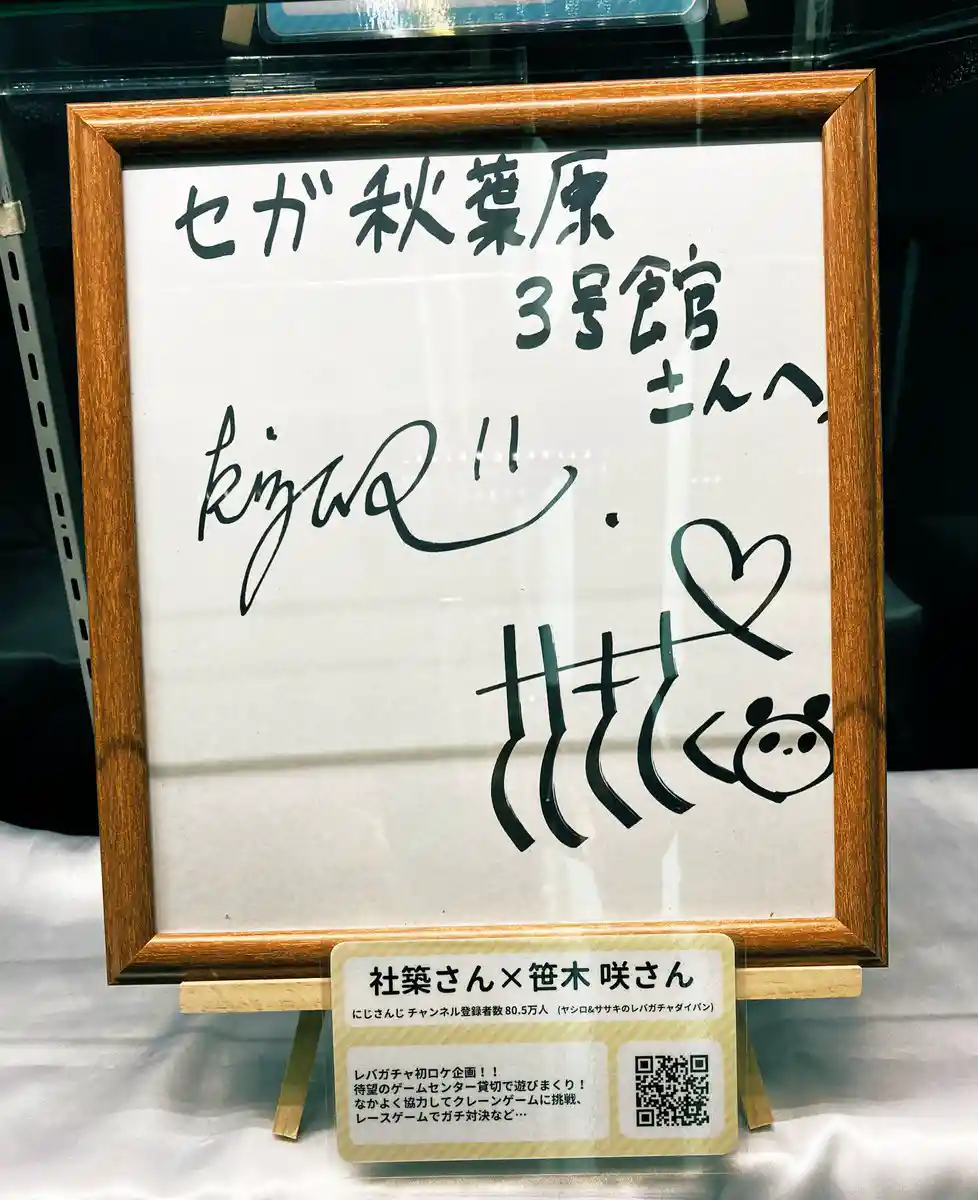 セガ秋葉原
3号館
さんへ
社築さん×笹木 咲さん
にじさんじ チャンネル登録者数 80.5万人 (ヤシロ&ササキのレバガチャダイパン)
レバガチャ初ロケ企画！！
待望のゲームセンター貸切で遊びまくり！
なかよく協力してクレーンゲームに挑戦、
レースゲームでガチ対決など…